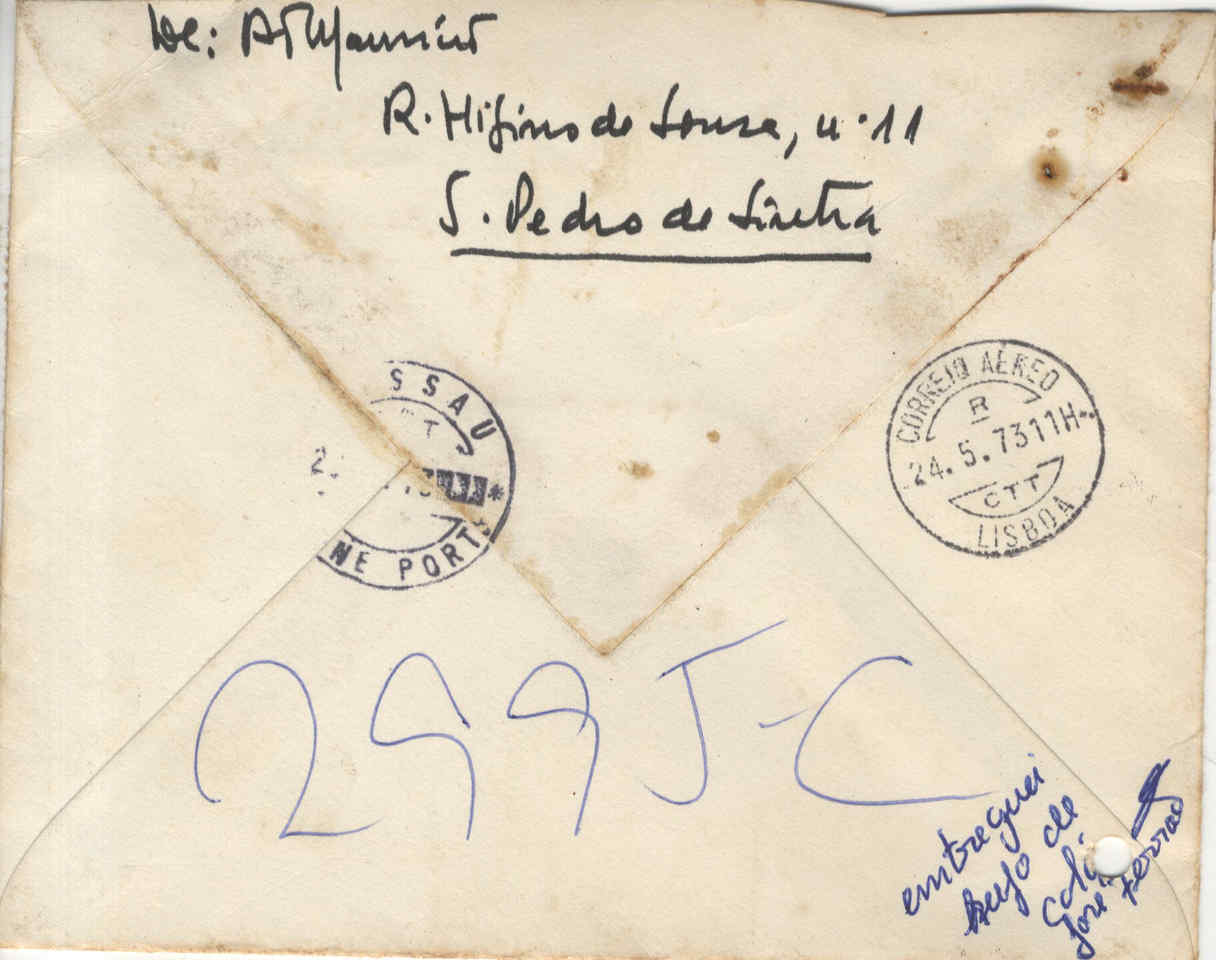 De:
R. Higino de Sousa, nº 11
S. Pedro de Sintra
SSAU
T
NE PORT
CORREIO AÉREO
R
24.5.7311H
CTT
LISBOA
299J-C
entreguei
de
José Ferrao